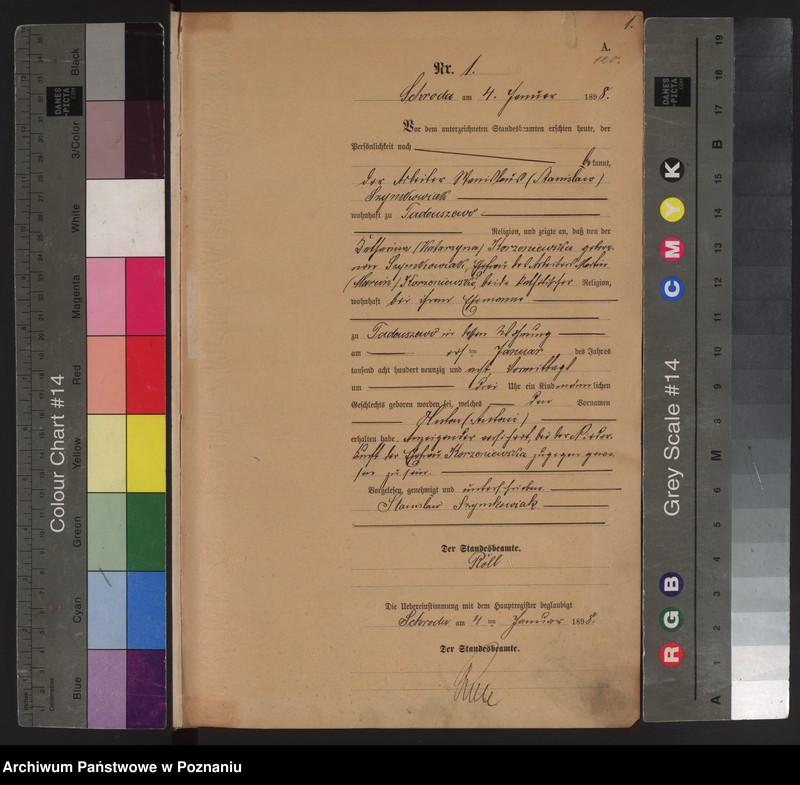 1.
A.
Nr. 1.
Schroda am 4. Januar 1898.
Vor dem unterzeichneten Standesbeamten erschien heute, der
Persönlichkeit nach
bekannt,
der Arbeiter Stanislaus (Stanisław)
Szymkowiak
wohnhaft zu Tadeuszewo
Religion, und zeigte an, daß von der
Katharina (Katarzyna) Korzeniewska gebore-
nen Szymkowiak, Ehefrau des Arbeiters Martin
(Marcin) Korzeniewski, beide katholischer Religion,
wohnhaft bei ihrem Ehemanne
zu Tadeuszewo in dessen Wohnung
am Januar des Jahres
tausend acht hundert neunzig und acht, Vormittags
um drei Uhr ein Kind männlichen
Geschlechts geboren worden sei, welches den Vornamen
Anton (Antoni)
erhalten habe. Anzeigender versichert, bei der Nieder-
kunft der Ehefrau Korzeniewska zugegen gewe-
sen zu sein.
Vorgelesen, genehmigt und unterschrieben
Stanisław Szymkowiak
Der Standesbeamte.
Röll
Die Uebereinstimmung mit dem Hauptregister beglaubigt
Schroda am 4 ten Januar 1898.
Der Standesbeamte.
Colour Chart #14
Blue
Cyan
Green
Yellow
Red
Magenta
White
3/Color
Black
DANES
-PICTA
.COM
Grey Scale #14
DANES
-PICTA
.COM
R G B
C M Y K
A 1 2 3 4 5 6 M 8 9 10 11 12 13 14 15 B 17 18 19
Archiwum Państwowe w Poznaniu